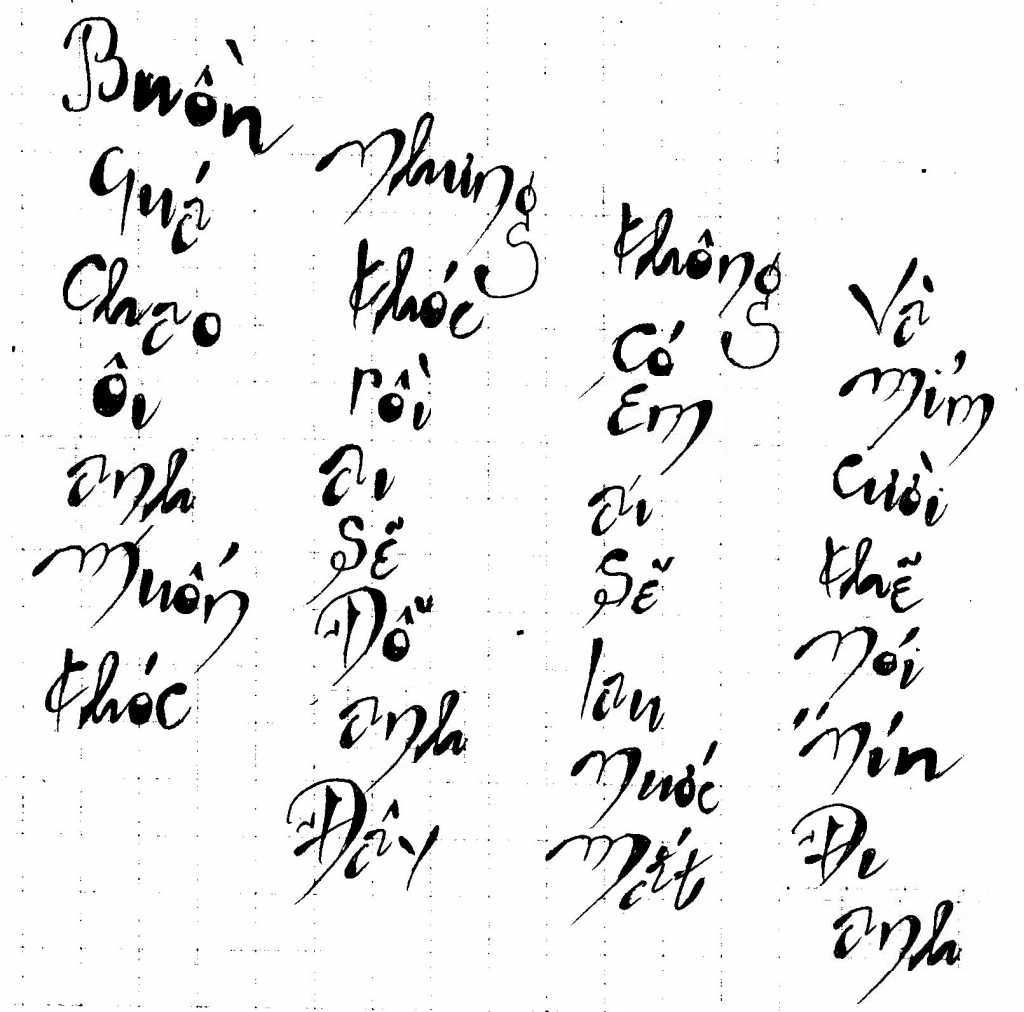 Buồn Quá Chao ôi anh Muốn khóc
Nhưng khóc rồi ai Sẽ Đỗ anh Đây
không Có Em ai Sẽ lau Nước Mắt
Và Mỉm Cười khẽ Nói "Nín Đi anh